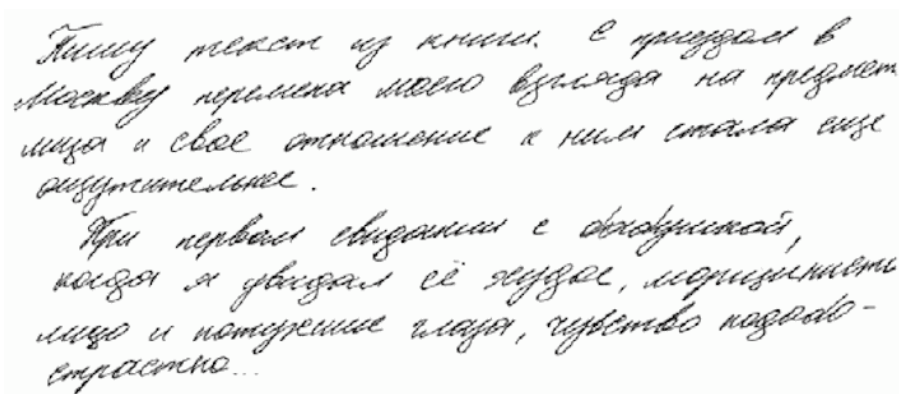 Пишу текст из книги. С приездом в
Москву перемена моего взгляда на предмет
лица и свое отношение к ним стала еще
ощутительнее.
При первом свидании с бабушкой,
когда я увидал её худое, морщинисты
лицо и потухшие глаза, чувство подобо-
страстно...